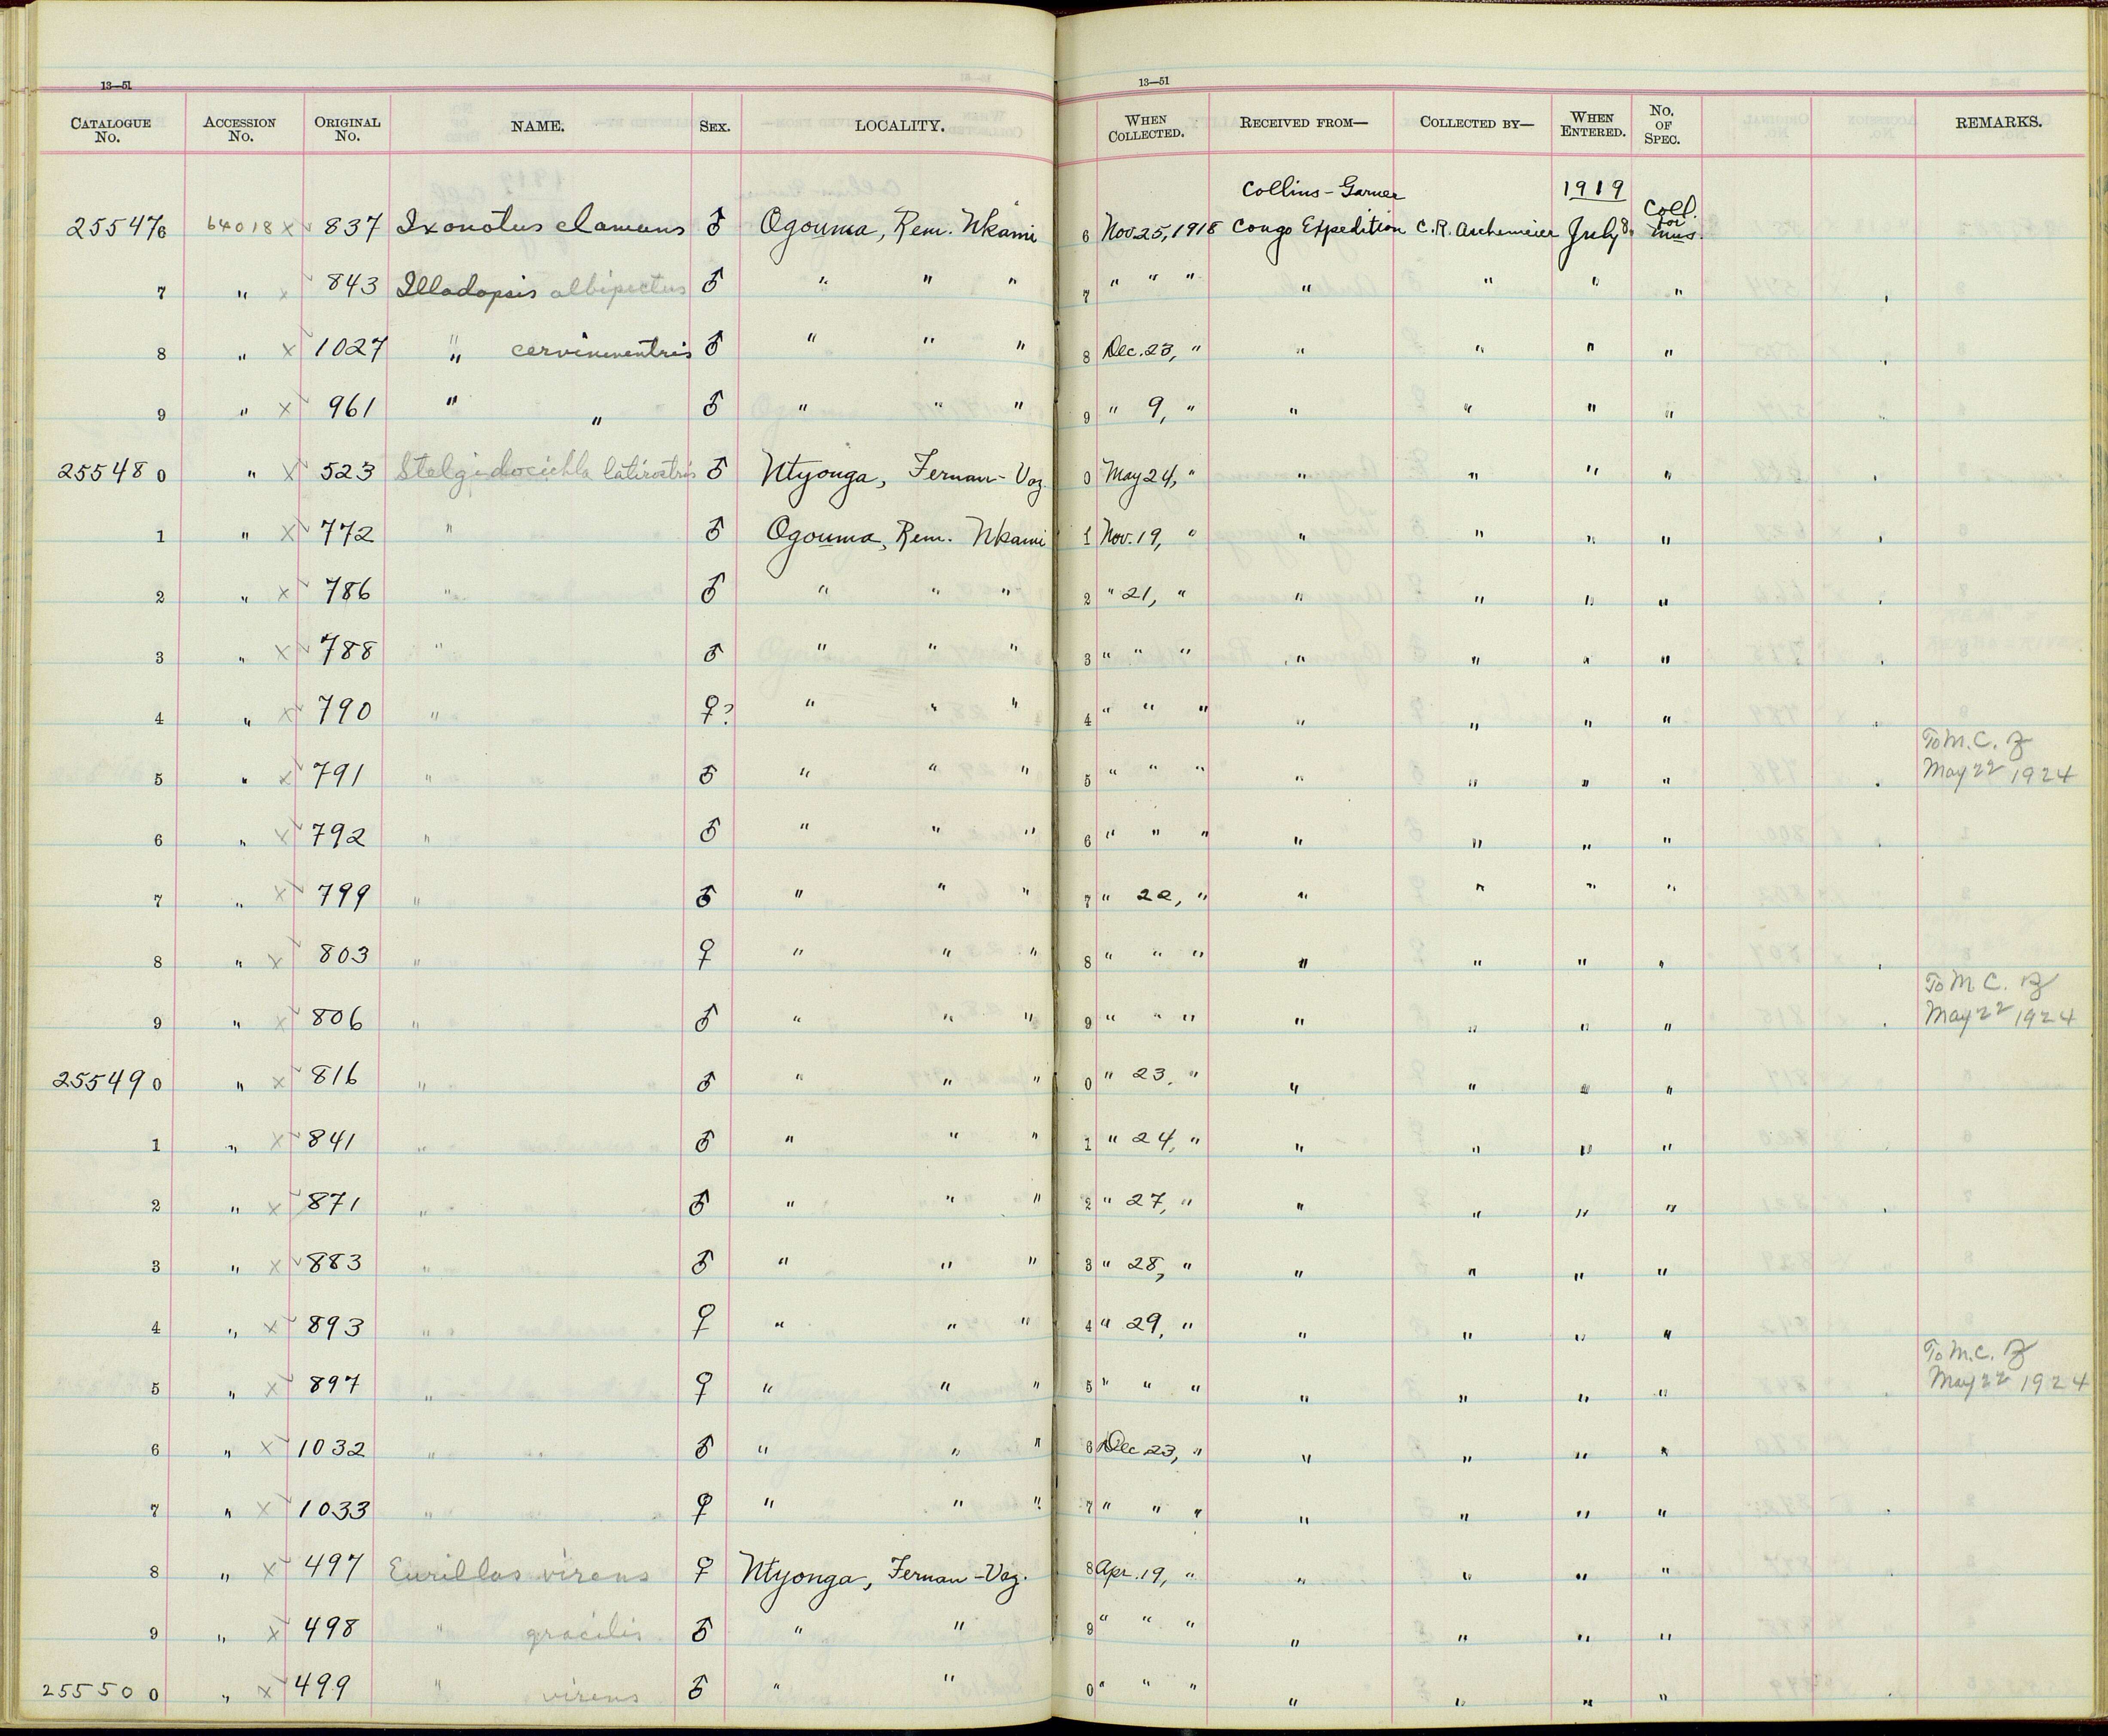 13—51 13—51
CATALOGUE No. ACCESSION No. ORIGINAL No. NAME. SEX. LOCALITY. WHEN COLLECTED. RECEIVED FROM— COLLECTED BY— WHEN ENTERED. No. OF SPEC. REMARKS.
Collins-Garner 1919
255476 64018 x 837 Ixonotus ♂ Ogouma, Rem. Nkami 6 Nov. 25, 1918 Congo Expedition C.R. Aschemeier July 8, Coll. for mus.
7 " x 843 Illadopsis albipectus ♂ " " " 7 " " " " " " "
8 " x 1027 " ♂ " " " 8 Dec. 23, " " " " "
9 " x 961 " " ♂ " " " 9 " 9, " " " " "
255480 " x 523 Stelgidocichla latirostris ♂ Ntyonga, Fernan-Vaz 0 May 24, " " " " "
1 " x 772 " ♂ Ogouma, Rem. Nkami 1 Nov. 19, " " " " "
2 " x 786 " ♂ " " " 2 " 21, " " " " "
3 " x 788 " ♂ " " " 3 " " " " " " "
4 " x 790 " ♀? " " " 4 " " " " " " "
To M.C.Z
5 " x 791 " ♂ " " " 5 " " " " " " " May 22 1924
6 " x 792 " ♂ " " " 6 " " " " " " "
7 " x 799 " ♂ " " " 7 " 22, " " " " "
8 " x 803 " ♀ " " " 8 " " " " " " "
To M.C.Z
9 " x 806 " ♂ " " " 9 " " " " " " " May 22 1924
255490 " x 816 " ♂ " " " 0 " 23, " " " " "
1 " x 841 " ♂ " " " 1 " 24, " " " " "
2 " x 871 " ♂ " " " 2 " 27, " " " " "
3 " x 883 " ♂ " " " 3 " 28, " " " " "
4 " x 893 " ♀ " " " 4 " 29, " " " " "
To M.C.Z
5 " x 897 " ♀ " " " 5 " " " " " " " May 22 1924
6 " x 1032 " ♂ " " " 6 Dec 23, " " " " "
7 " x 1033 " ♀ " " " 7 " " " " " " "
8 " x 497 Eurillas virens ♀ Ntyonga, Fernan-Vaz. 8 Apr. 19, " " " " "
9 " x 498 " gracilis ♂ " " 9 " " " " " " "
255500 " x 499 " virens ♂ " " 0 " " " " " " "